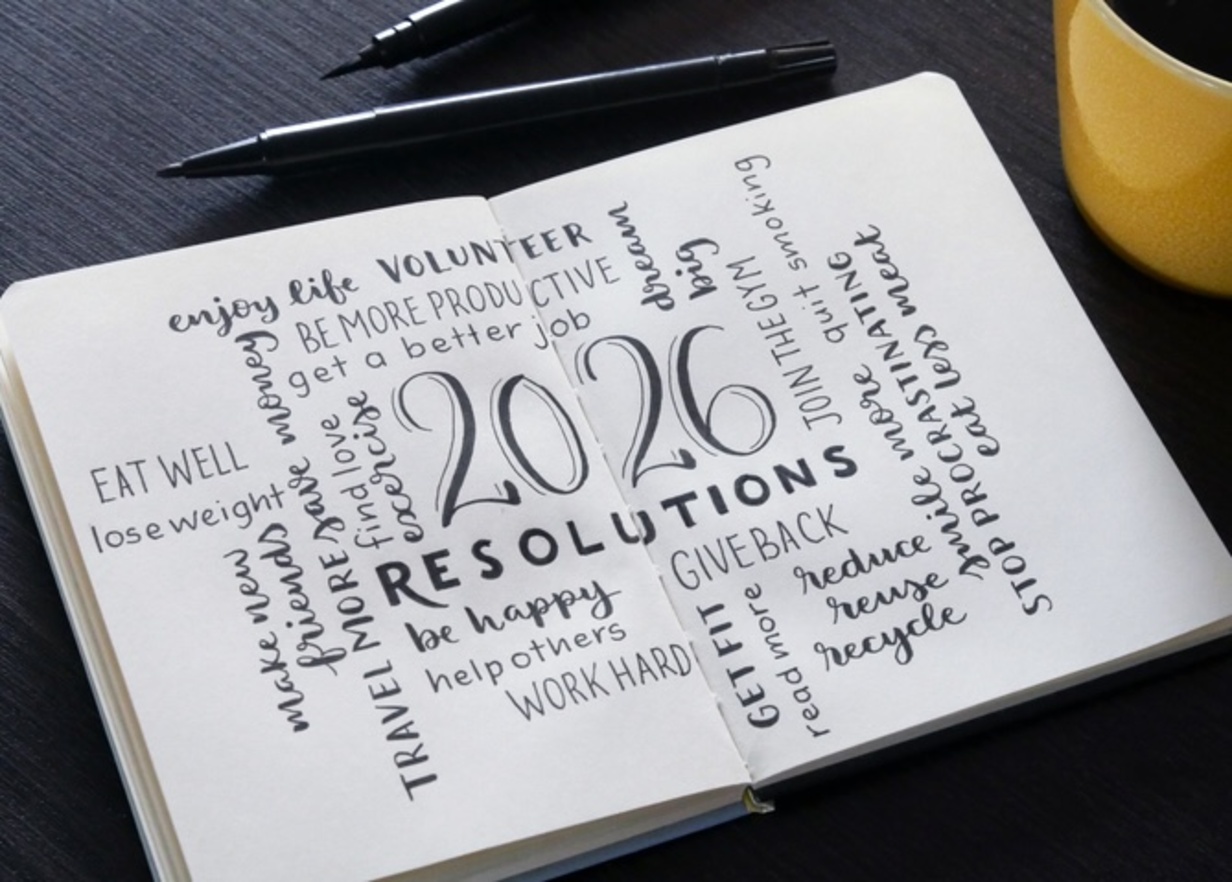 enjoy life VOLUNTEER
BE MORE PRODUCTIVE
get a better job
dream
big
JOIN THE GYM
quit smoking
smile more
STOP PROCRASTINATING
eat less meat
save money
find love
excercise
2026
RESOLUTIONS
EAT WELL
lose weight
make new
friends
TRAVEL MORE
be happy
help others
WORK HARD
GIVE BACK
GET FIT
read more
reduce
reuse
recycle